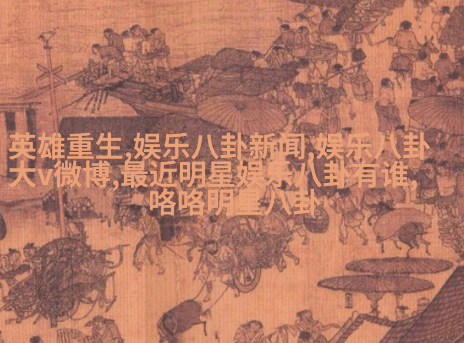 英雄重生,娱乐八卦新闻,娱乐八卦
大v微博,最近明星娱乐八卦有谁,
咯咯明星八卦